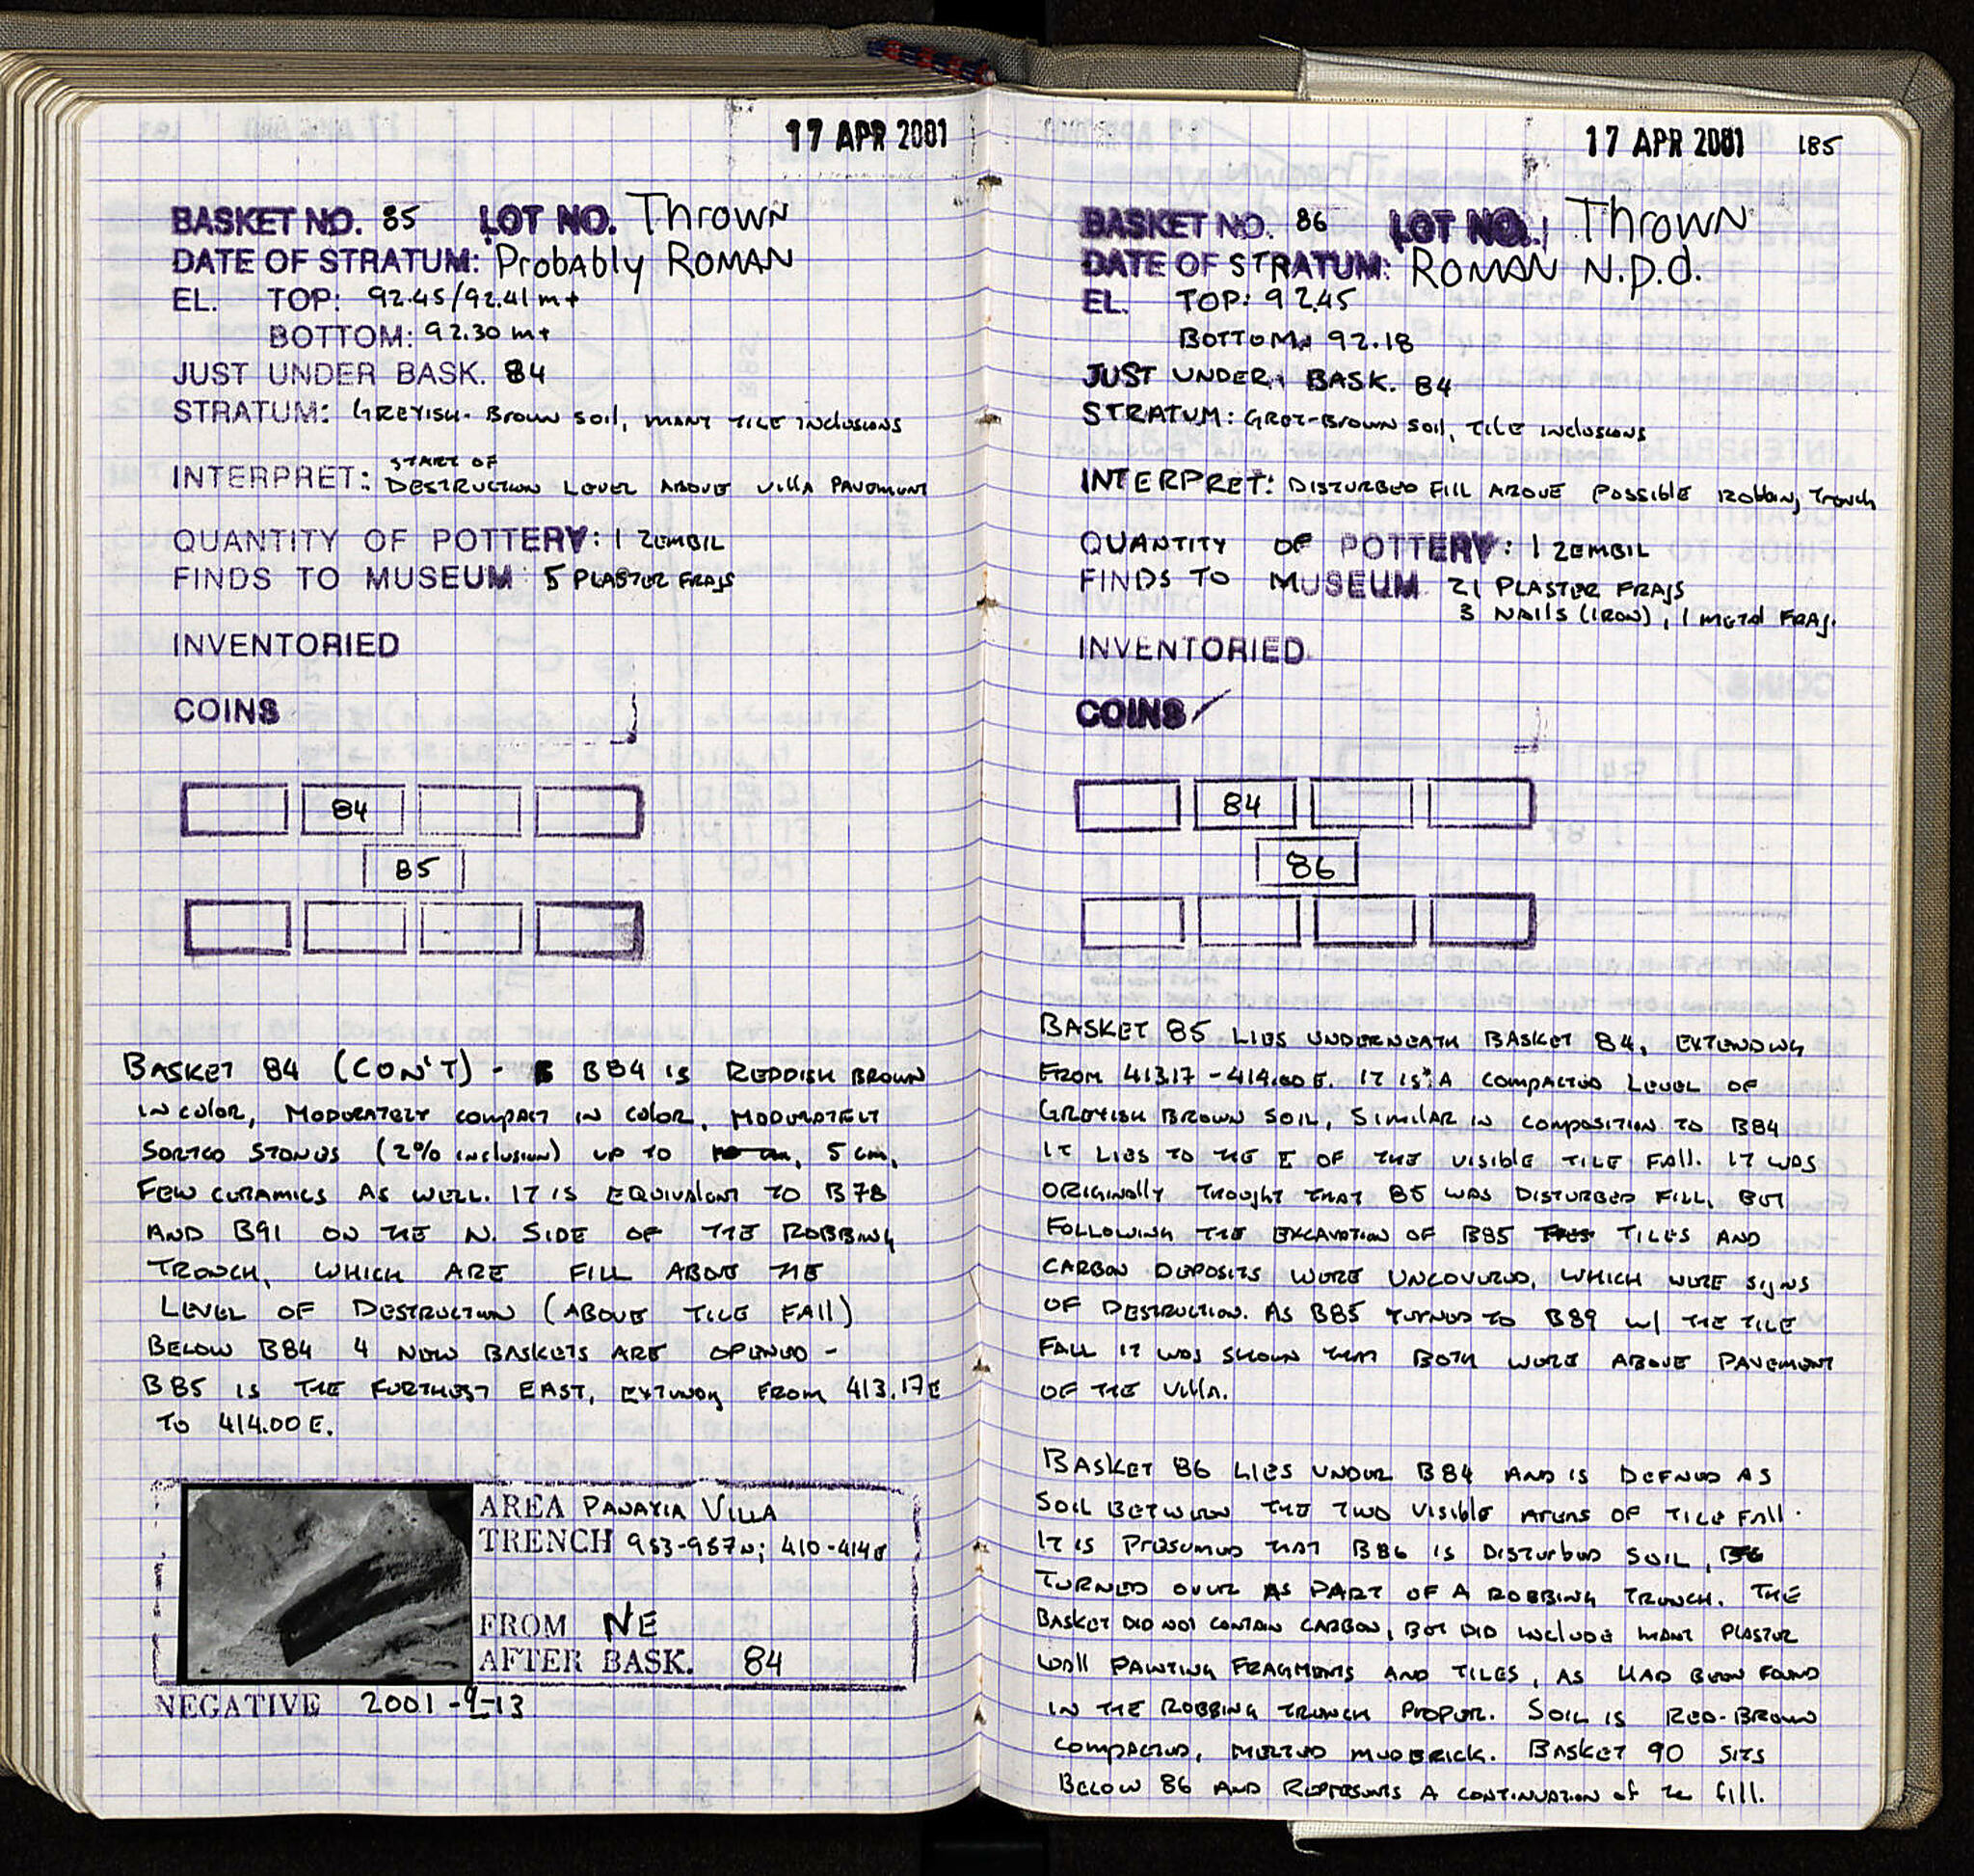 17 APR 2001
BASKET NO. 85 LOT NO. Thrown
DATE OF STRATUM: Probably ROMAN
EL. TOP: 92.45/92.41 m+
BOTTOM: 92.30 m+
JUST UNDER BASK. 84
STRATUM: Greyish-Brown soil, many tile inclusions
START OF
INTERPRET: DESTRUCTION LEVEL ABOVE VILLA PAVEMENT
QUANTITY OF POTTERY: 1 ZEMBIL
FINDS TO MUSEUM: 5 PLASTER FRAGS
INVENTORIED
COINS
84
85
BASKET 84 (CON'T) - B84 IS REDDISH BROWN
IN COLOR, MODERATELY COMPACT IN COLOR, MODERATELY
SORTED STONES (2% INCLUSION) UP TO 5 cm,
FEW CERAMICS AS WELL. IT IS EQUIVALENT TO B78
AND B91 ON THE N. SIDE OF THE ROBBING
TRENCH, WHICH ARE FILL ABOVE THE
LEVEL OF DESTRUCTION (ABOVE TILE FALL)
BELOW B84 4 NEW BASKETS ARE OPENED -
B85 IS THE FURTHEST EAST, EXTENDING FROM 413.17E
TO 414.00E.
AREA PANAYIA VILLA
TRENCH 953-957N; 410-414E
FROM NE
AFTER BASK. 84
NEGATIVE 2001-9-13
17 APR 2001 185
BASKET NO. 86 LOT NO. Thrown
DATE OF STRATUM: ROMAN N.p.d.
EL. TOP: 92.45
BOTTOM: 92.18
JUST UNDER BASK. 84
STRATUM: GREY-BROWN SOIL, TILE INCLUSIONS
INTERPRET: DISTURBED FILL ABOVE POSSIBLE ROBBING TRENCH
QUANTITY OF POTTERY: 1 ZEMBIL
FINDS TO MUSEUM 21 PLASTER FRAGS
3 NAILS (IRON), 1 METAL FRAG.
INVENTORIED
COINS
84
86
BASKET 85 LIES UNDERNEATH BASKET 84, EXTENDING
FROM 413.17 - 414.00 E. IT IS A COMPACTED LEVEL OF
GREYISH BROWN SOIL, SIMILAR IN COMPOSITION TO B84
IT LIES TO THE E OF THE VISIBLE TILE FALL. IT WAS
ORIGINALLY THOUGHT THAT 85 WAS DISTURBED FILL, BUT
FOLLOWING THE EXCAVATION OF B85 TILES AND
CARBON DEPOSITS WERE UNCOVERED, WHICH WERE SIGNS
OF DESTRUCTION. AS B85 TURNED TO B89 w/ THE TILE
FALL IT WAS SHOWN THAT BOTH WERE ABOVE PAVEMENT
OF THE VILLA.
BASKET 86 LIES UNDER B84 AND IS DEFINED AS
SOIL BETWEEN THE TWO VISIBLE AREAS OF TILE FALL.
IT IS PRESUMED THAT B86 IS DISTURBED SOIL,
TURNED OVER AS PART OF A ROBBING TRENCH. THE
BASKET DID NOT CONTAIN CARBON, BUT DID INCLUDE MANY PLASTER
WALL PAINTING FRAGMENTS AND TILES, AS HAD BEEN FOUND
IN THE ROBBING TRENCH PROPER. SOIL IS RED-BROWN
COMPACTED, MELTED MUDBRICK. BASKET 90 SITS
BELOW 86 AND REPRESENTS A CONTINUATION of the fill.